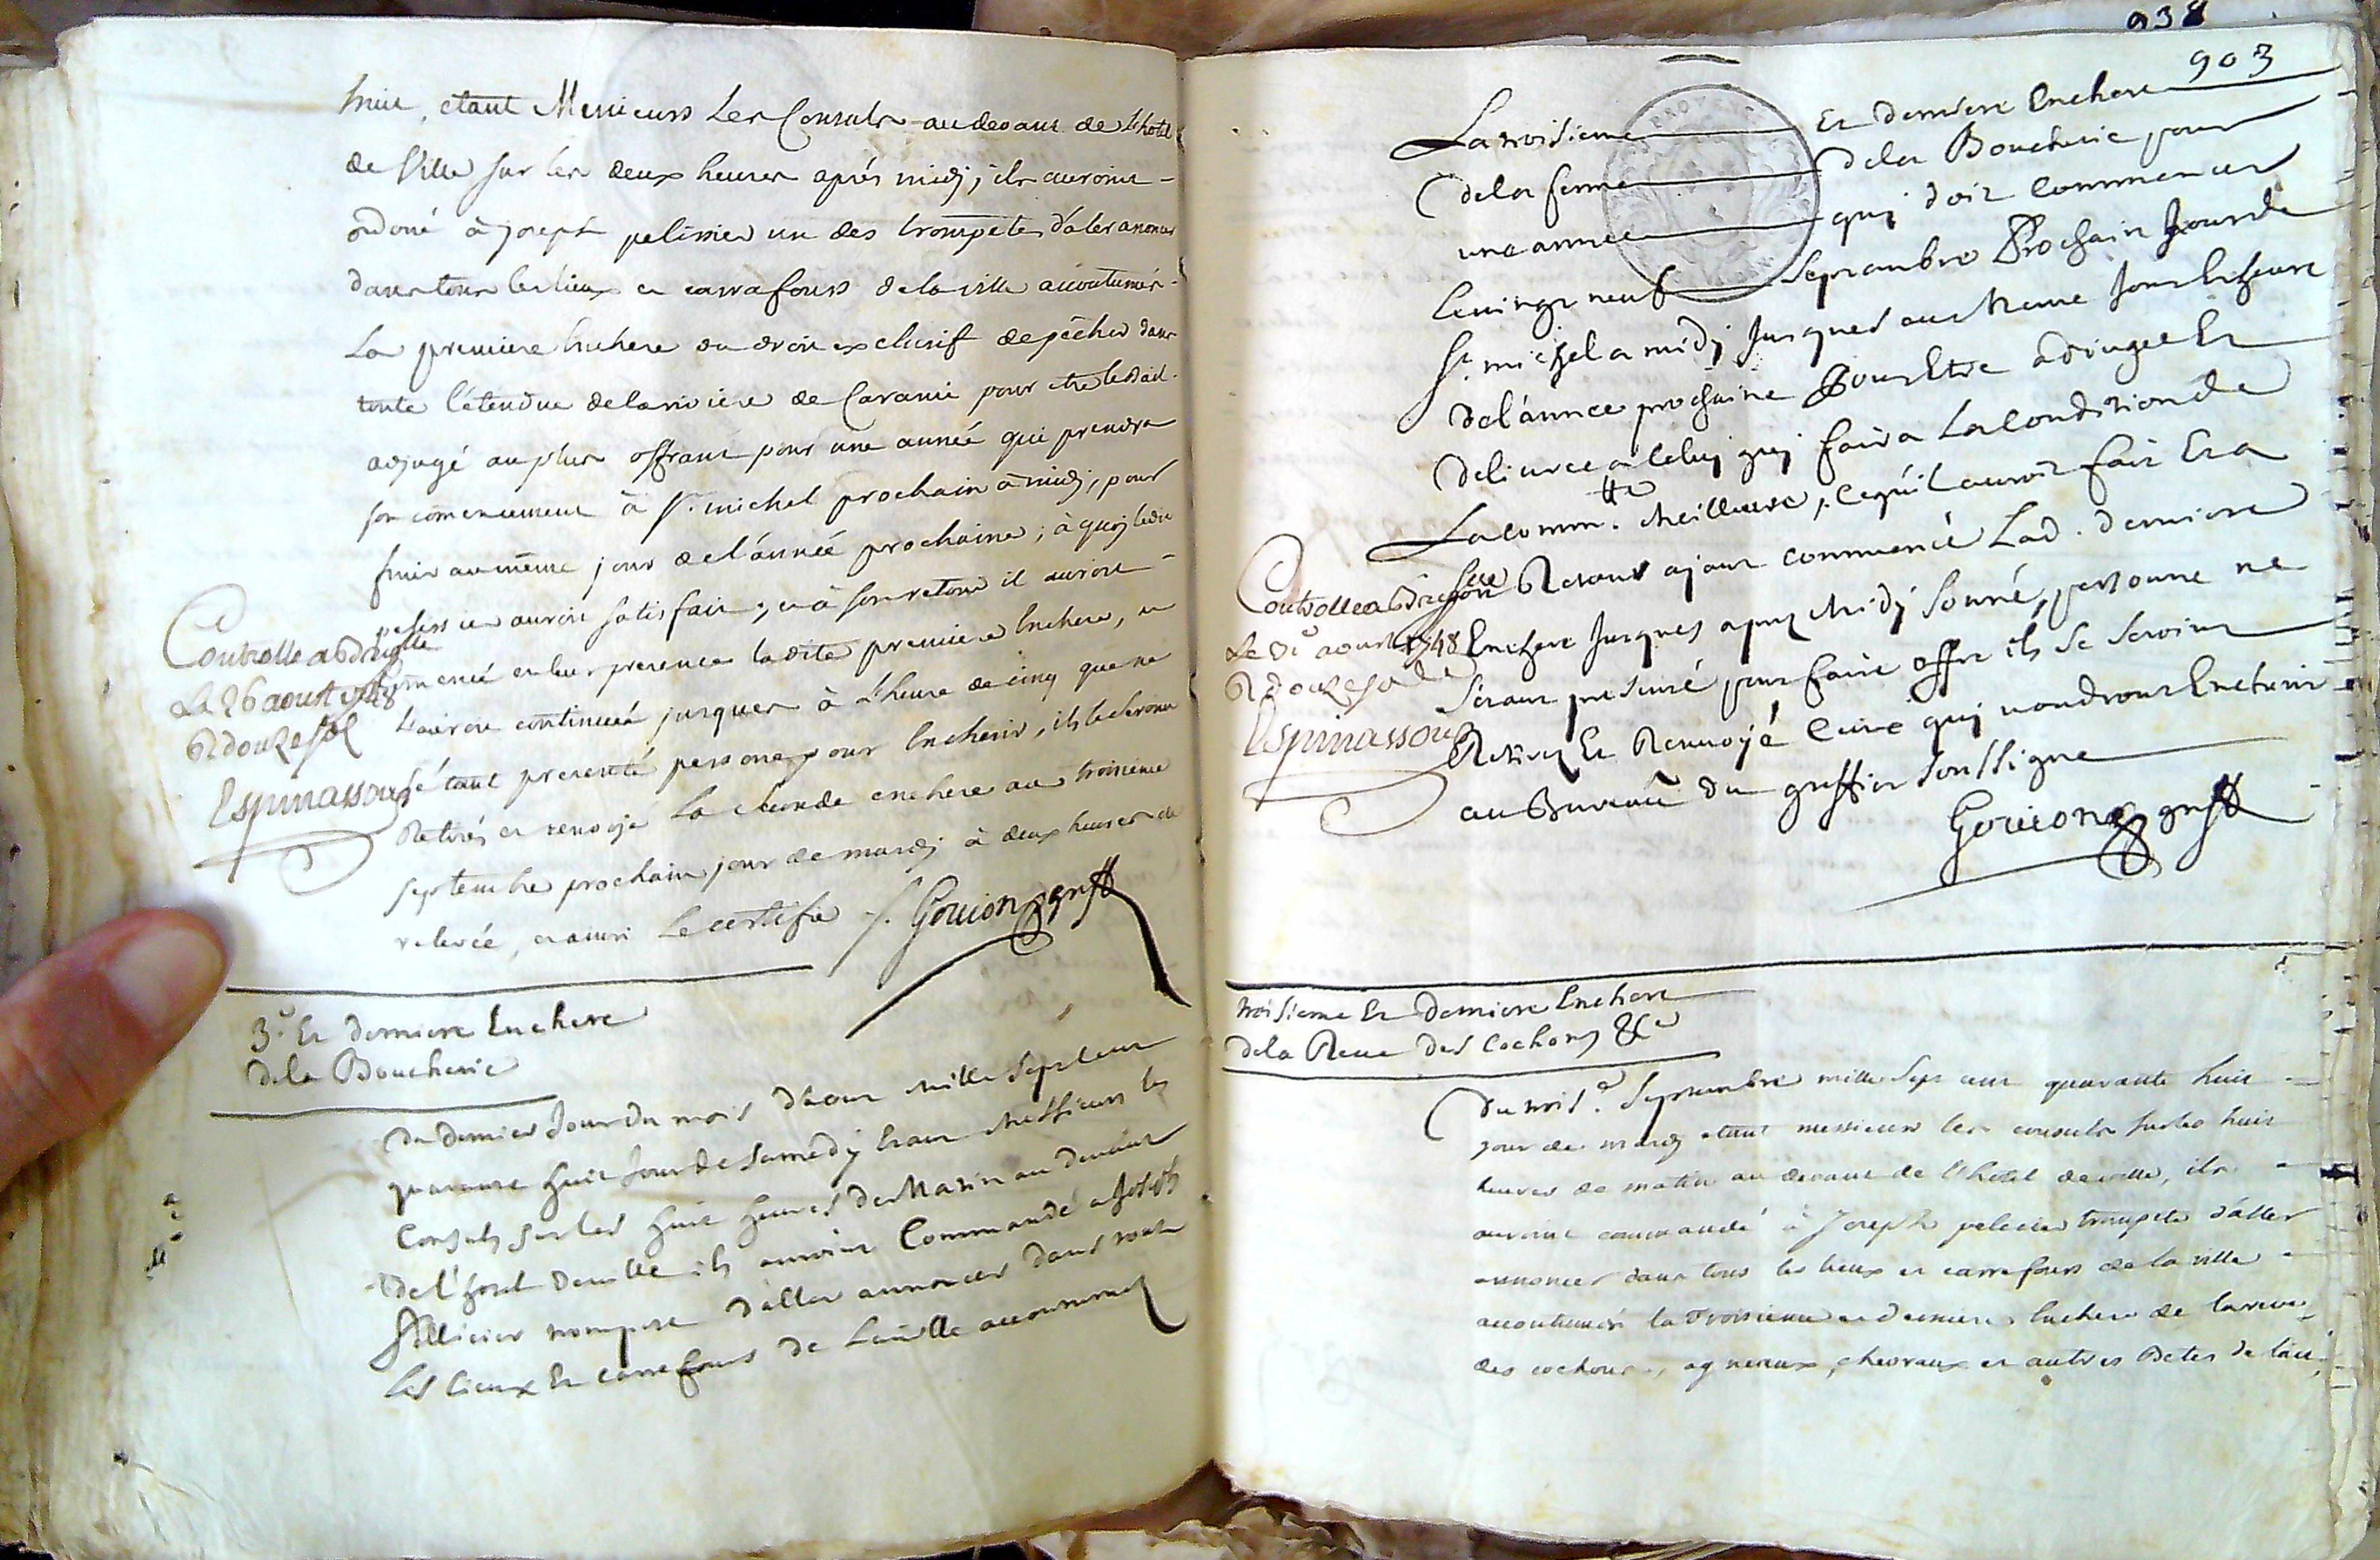 huit, etant Messieurs Les Consuls au devant de L'hotel
de Ville sur les deux heures aprés midj, ils auroint -
ordoné à joseph pelissier un des trompetes d'aler anoncer
dans tous les lieux et carrafours de la ville accoutumés -
La premiere enchere du droit exclusif de pêcher dans
toute l'étendue de la riviere de Caramie pour etre le bail
adjugé au plus offrant pour une année qui prendra
son comencement à St. michel prochain à midj, pour
finir au même jour de l'année prochaine; à quoj ledit
pelissier auroit satisfait; et à son retour il auroit -
comencé en leur presence la dite premiere enchere, et
l'auroit continuée jusques à L'heure de cinq que ne
s'étant presenté persone pour encherir, ils se seroint
Retirés et renvoyé La seconde enchere au troisieme
septembre prochain jour de mardj à deux heures de
relevée, et ainsi Le certifie /. Gouion greff
Controlle a Brignolle
Le 26 aoust 1748
R douze sols
Espinassous
3.e Et derniere Enchere
de la Boucherie
Du dernier Jour du mois d'aout Mille Sept cent
quarante huit Jour de Samedy Etant Messieurs les
Consuls sur les huit heures du Matin au devant
de l'hotel de ville ils auroint Commandé a Joseph
Pellicier trompete d'aller annoncer dans tous
les lieux Et carrefours de La ville accoutumez
938
903
La troisieme Et derniere Enchere
de la ferme de la Boucherie pour
une année quj doit Commencer
le vingt neuf Septembre Prochain Jour de
St. michel a midj Jusques au Meme Jour Et heure
de l'année prochaine Pour Etre adjugée Et
delivrée a Celuj quj faira La Condition de
La comm.tté Meilleure, Ce qu'il auroit fait Et a
son Retour ajant commencé Lad. derniere
Enchere Jusques apres Midj Sonné, personne ne
S'etant presenté pour faire offre ils se seroint
Retirez Et Renvoyé Ceux quj voudront Encherir
au Bureau du greffier Soussigne
Gouion greff
Controlle a Brignolle
Le 31 aoust 1748
R douze sols
Espinassous
troisieme Et derniere Enchere
de la Reve des Cochons &c
Du trois.e Septembre mille sept cent quarante huit
jour de mardj etant messieurs les consuls sur les huit
heures de matin au devant de l'hotel de ville, ils
auroint commandé à Joseph pelicier trompete d'aller
annoncer dans tous les lieux et carrefours de la ville
accoutumés la troisieme et derniere enchere de la reve
des cochons, agneaux, chevraux et autres betes de lait,